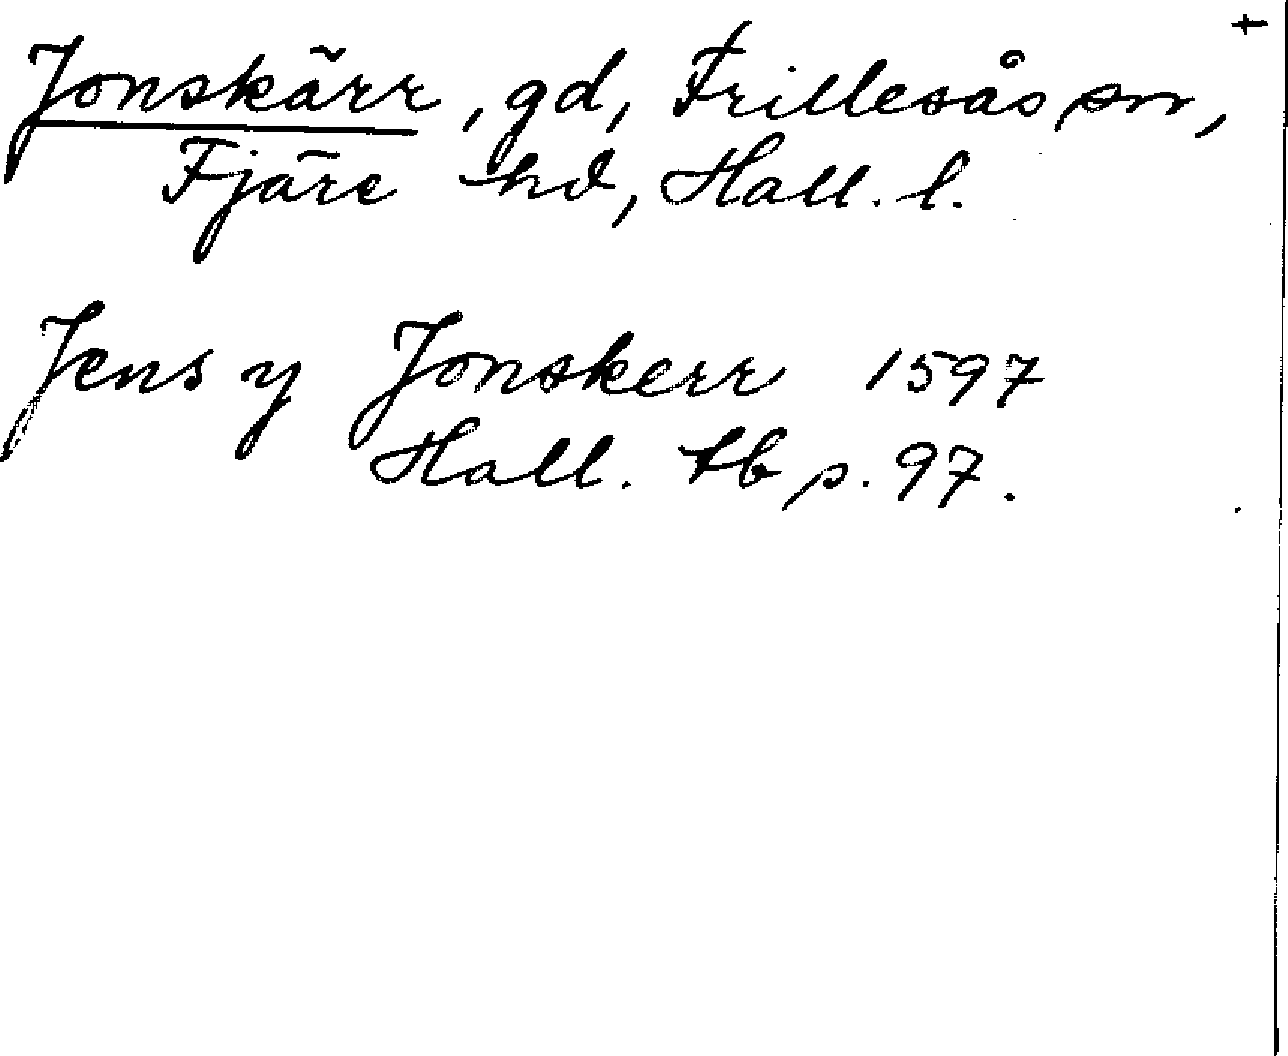 +
Jonskärr, gd, Frillesås sn,
Fjäre hd, Hall. l.
Jens y Jonskerr 1597
Hall. tb s. 97.